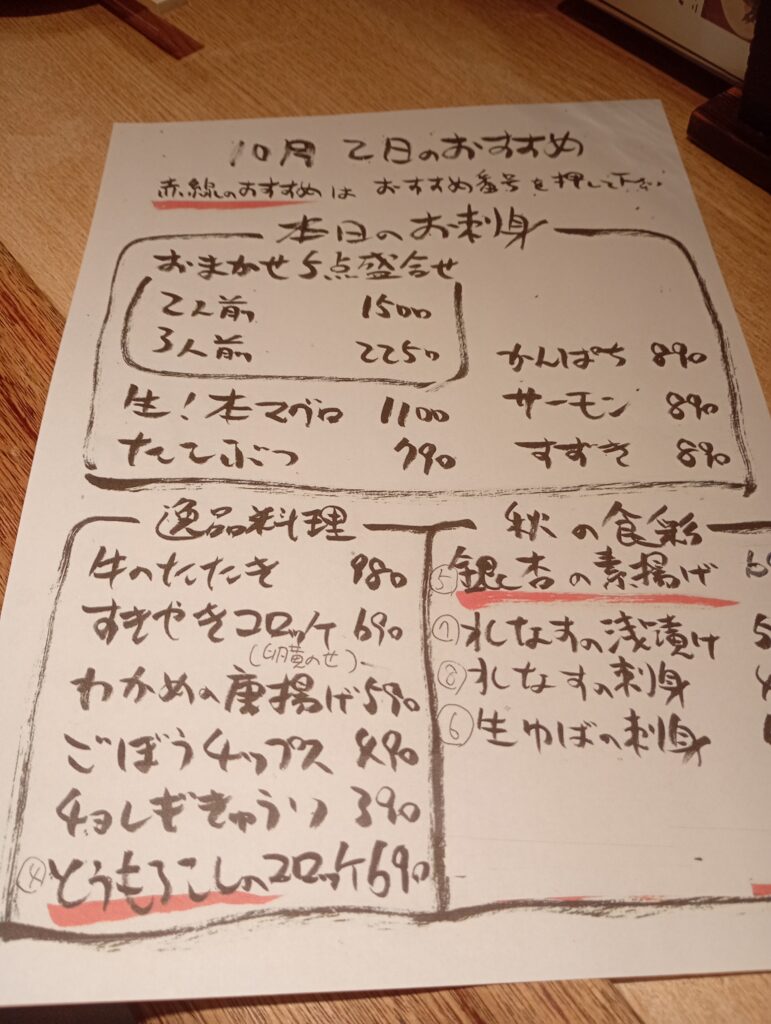 10月2日のおすすめ
赤線のおすすめは おすすめ番号を押して下さい
本日のお刺身
おまかせ5点盛合せ
2人前 1500
3人前 2250
生!本マグロ 1100
たこぶつ 790
かんぱち 890
サーモン 890
すずき 890
逸品料理
牛のたたき 980
すきやきコロッケ 690
(卵黄のせ)
わかめの唐揚げ 590
ごぼうチップス 490
チョレギきゅうり 390
④とうもろこしのコロッケ 690
秋の食彩
⑤銀杏の素揚げ
⑦水なすの浅漬け
⑧水なすの刺身
⑥生ゆばの刺身